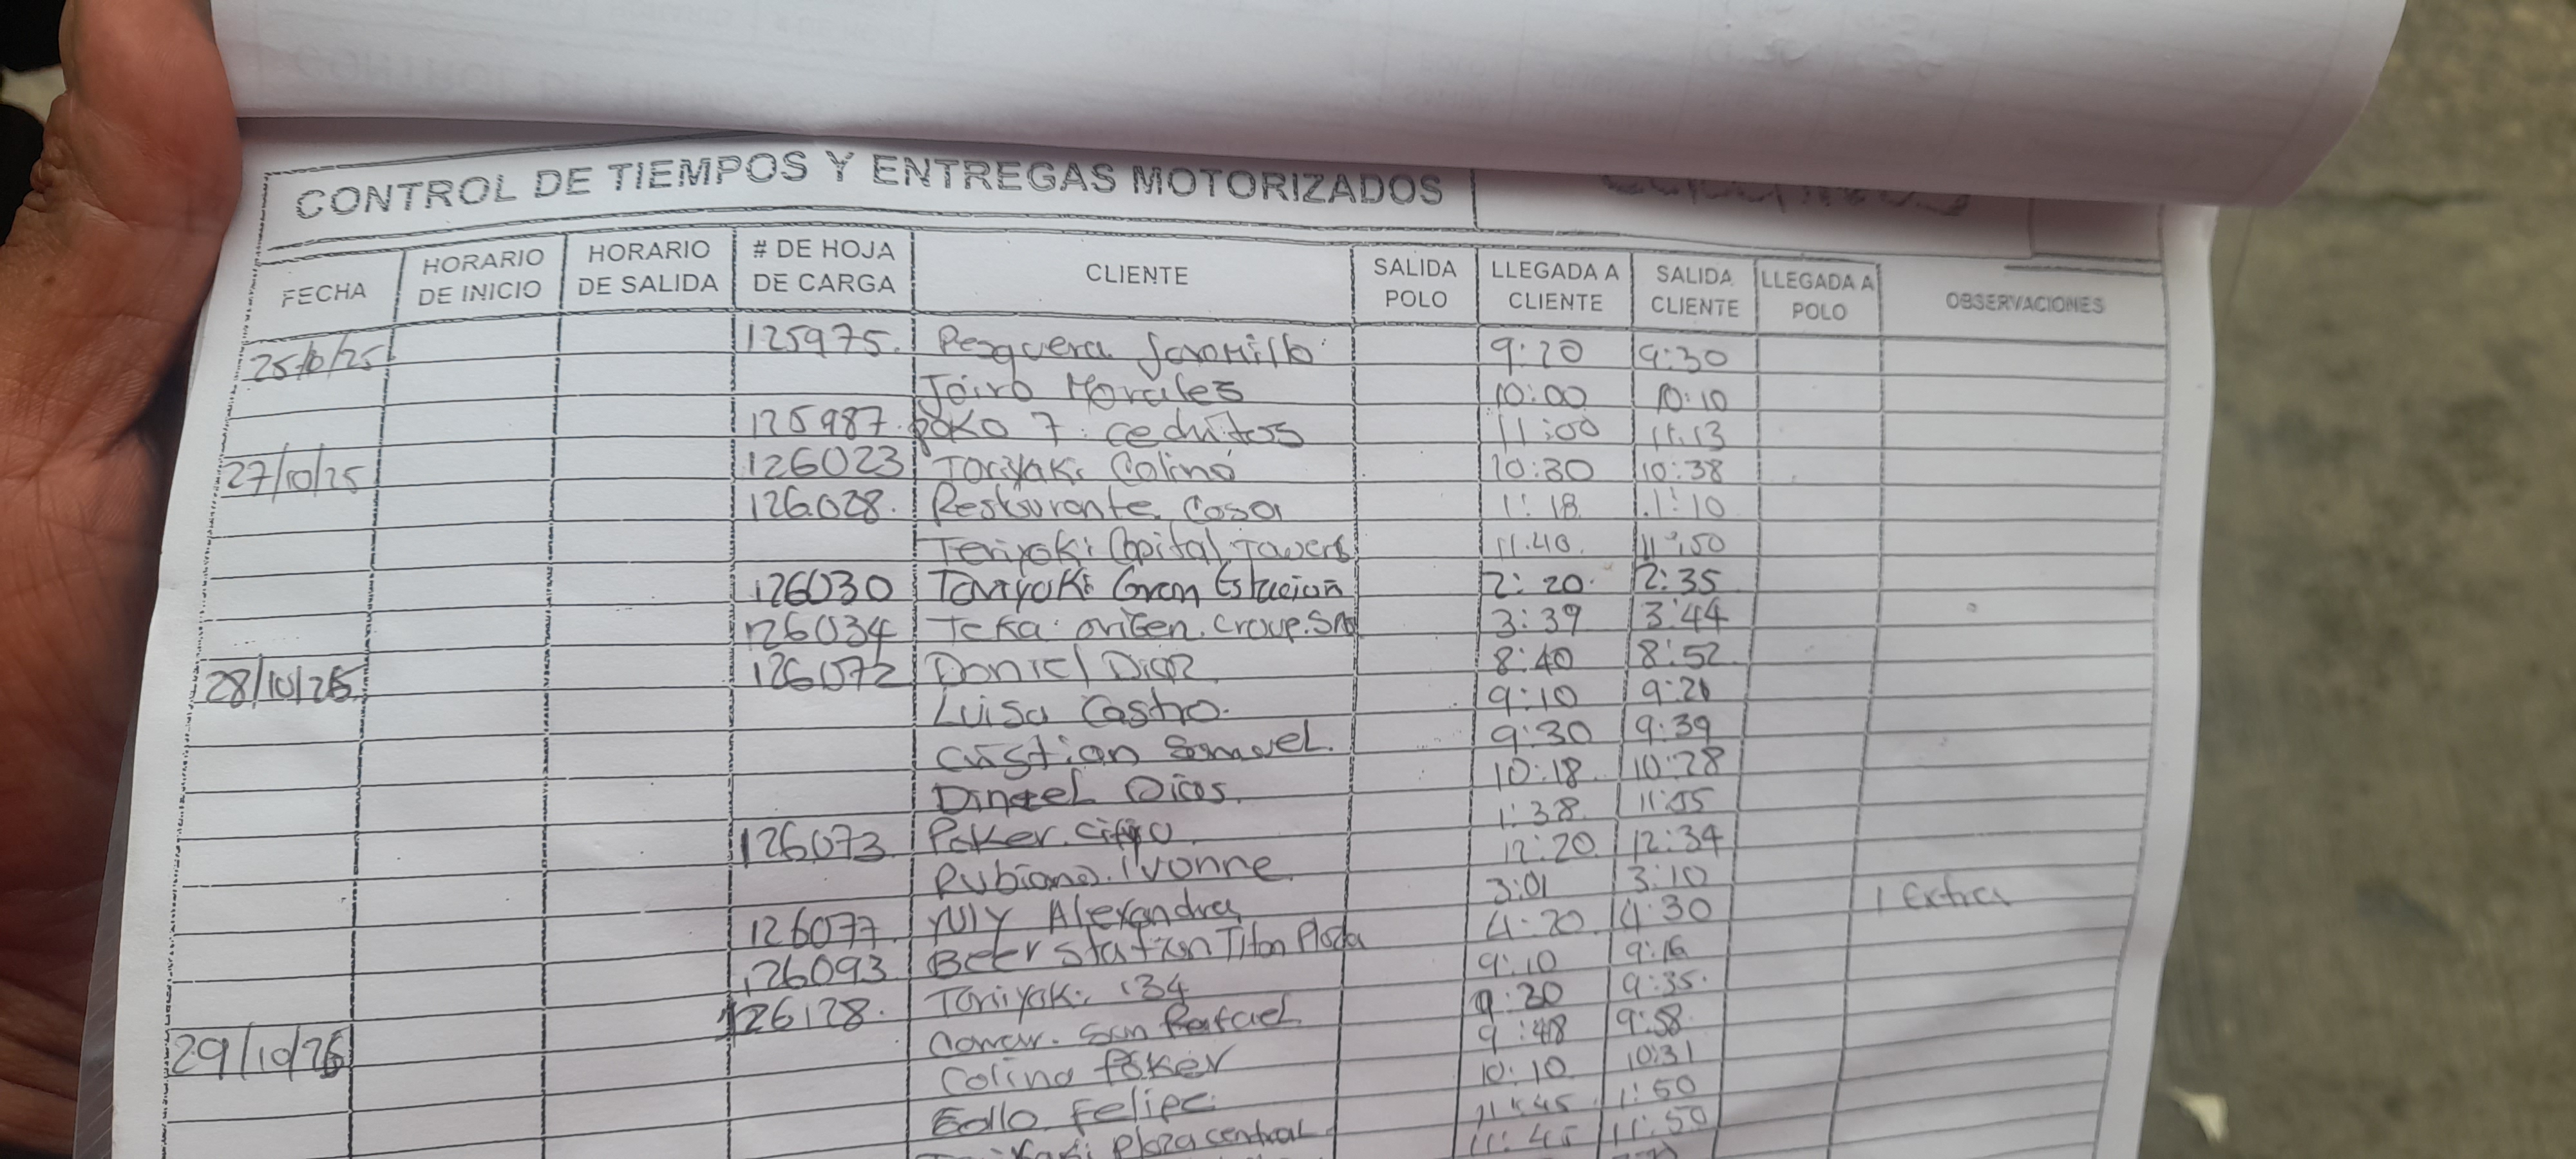 CONTROL DE TIEMPOS Y ENTREGAS MOTORIZADOS
FECHA HORARIO DE INICIO HORARIO DE SALIDA # DE HOJA DE CARGA CLIENTE SALIDA POLO LLEGADA A CLIENTE SALIDA CLIENTE LLEGADA A POLO OBSERVACIONES
25/10/25 125975. Pesquera Jaramillo 9:20 9:30
Jairo Morales 10:00 10:10
125987. poko 7. cedritos 11:00 11:13
27/10/25 126023 Toriyaki Colina 10:30 10:38
126028. Restaurante Casa 1:18 1:10
Teriyaki Capital Towers 11:40 11:50
126030 Toriyaki Gran Estacion 2:20 2:35
126034 Teka origen. Group. SAS 3:39 3:44
28/10/25 126072 Daniel Diaz 8:40 8:52
Luisa Castro. 9:10 9:20
Cristian Samuel. 9:30 9:39
10:18 10:28
126073 Poker 1:38 11:55
Rubiano. Ivonne 12:20 12:34
126077 Yuly Alexandra 3:01 3:10
126093 Beer Station Titan Plaza 4:20 4:30 1 Extra
126128. Toriyaki 134 9:10 9:16
29/10/25 San Rafael 9:20 9:35
Colina Poker 9:48 9:58
Felipe 10:10 10:31
Plaza central 11:45 1:50
11:45 11:50